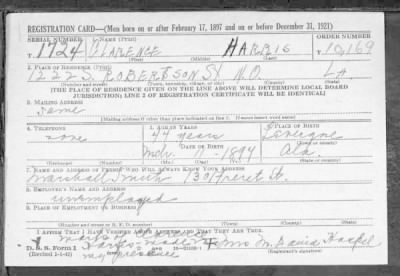 REGISTRATION CARD—(Men born on or after February 17, 1897 and on or before December 31, 1921)
SERIAL NUMBER 1. NAME (Print) ORDER NUMBER
T 1724 CLARENCE HARRIS T 10,169
(First) (Middle) (Last)
2. PLACE OF RESIDENCE (Print)
1222 S. ROBERTSON St N.O. La.
(Number and street) (Town, township, village, or city) (County) (State)
[THE PLACE OF RESIDENCE GIVEN ON THE LINE ABOVE WILL DETERMINE LOCAL BOARD
JURISDICTION; LINE 2 OF REGISTRATION CERTIFICATE WILL BE IDENTICAL]
3. MAILING ADDRESS
Same
[Mailing address if other than place indicated on line 2. If same insert word same]
4. TELEPHONE 5. AGE IN YEARS 6. PLACE OF BIRTH
none 44 years
DATE OF BIRTH (Town or county)
11 1897 Ala.
(Exchange) (Number) (Mo.) (Day) (Yr.) (State or country)
7. NAME AND ADDRESS OF PERSON WHO WILL ALWAYS KNOW YOUR ADDRESS
Marshall St.
8. EMPLOYER'S NAME AND ADDRESS
unemployed
9. PLACE OF EMPLOYMENT OR BUSINESS
(Number and street or R. F. D. number) (Town) (County) (State)
I AFFIRM THAT I HAVE VERIFIED ABOVE ANSWERS AND THAT THEY ARE TRUE.
D. S. S. Form 1 made
(Revised 1-1-42) my presence (Registrant's signature)